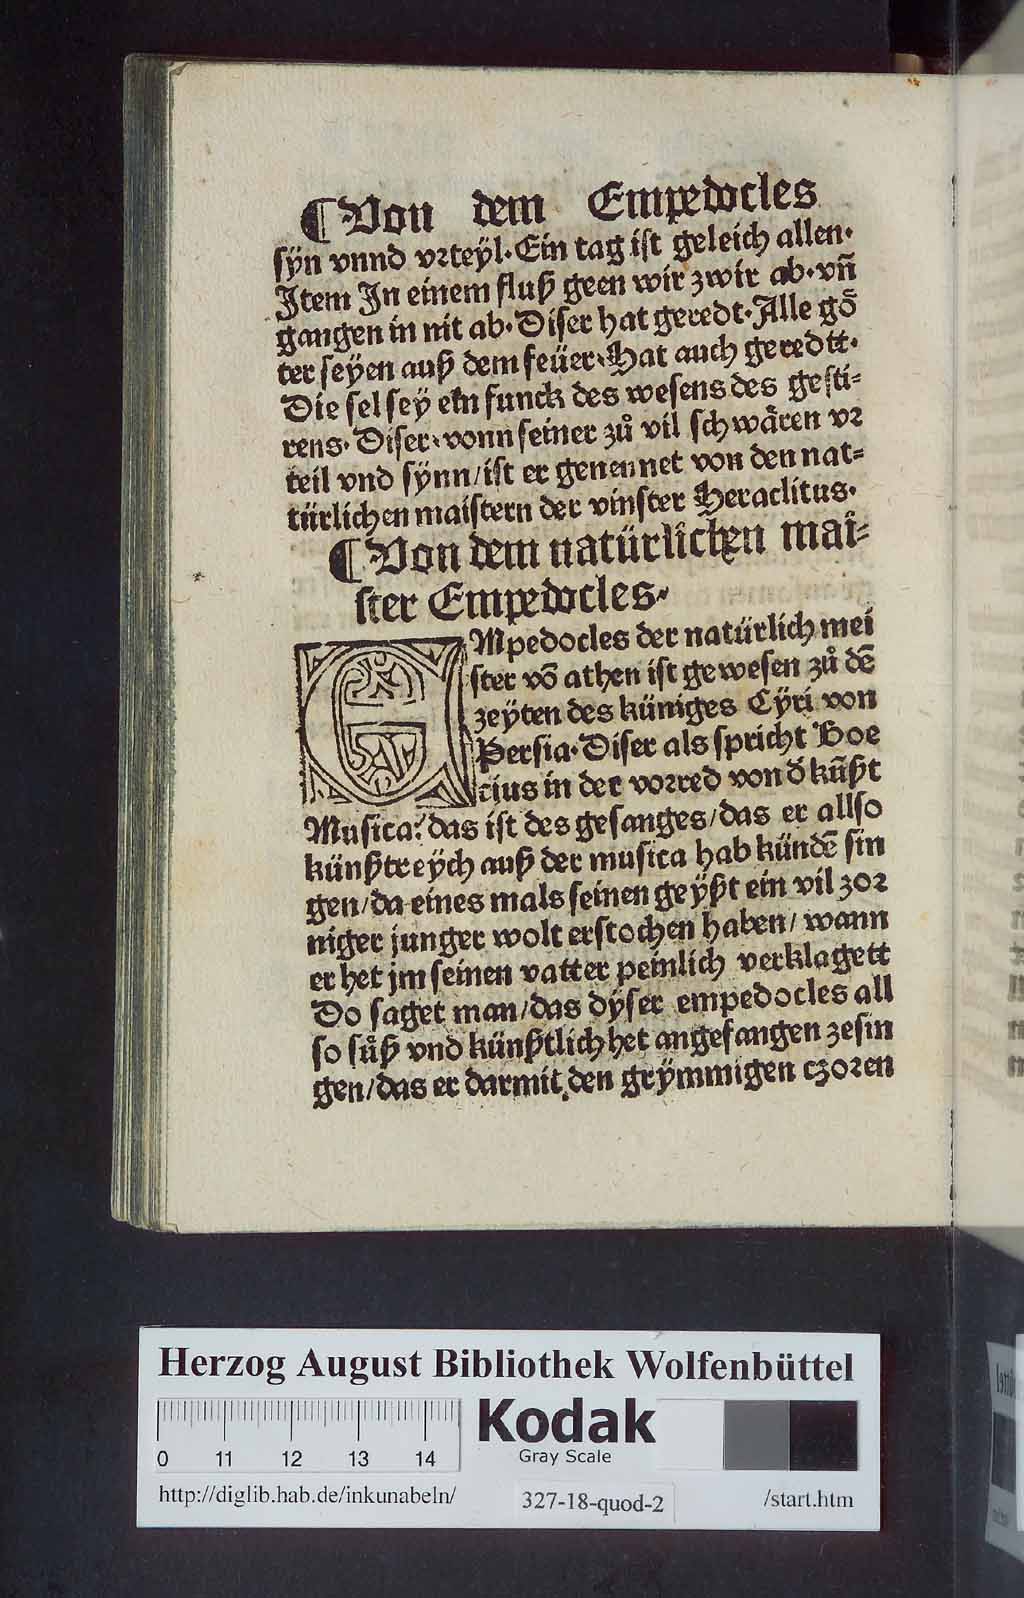 ¶ Von dem Empedocles
sÿn vnnd vꝛteÿl. Ein tag ist geleich allen.
Item In einem fluß geen wir zwir ab. vñ
gangen in nit ab. Diser hat geredt. Alle goͤ
ter seyen auß dem feüer. Hat auch geredtt.
Die sel sey ein funck des wesens des gesti⸗
rens. Diser. vonn seiner zů vil schwaͤren vꝛ
teil vnd sÿnn/ ist er genennet von den nat⸗
türlichen maistern der vinster Heraclitus.
¶ Von dem natürlichen mai⸗
ster Empedocles.
EMpedocles der natürlich mei
ster võ athen ist gewesen zů dẽ
zeÿten des küniges Cÿri von
Persia. Diser als spricht Boe
cius in der voꝛred von d̕ kũßt
Musica. das ist des gesanges/ das er allso
künßtreÿch auß der musica hab kündẽ sin
gen/ da eines mals seinen geÿßt ein vil zoꝛ
niger junger wolt erstochen haben/ wann
er het jm seinen vatter peinlich verklagett
Do saget man/ das dÿser empedocles all
so sůß vnd künßtlich het angefangen zesin
gen/ das er darmit den grÿmmigen czoꝛen
Herzog August Bibliothek Wolfenbüttel
Kodak
Gray Scale
0 11 12 13 14
http://diglib.hab.de/inkunabeln/ 327-18-quod-2 /start.htm